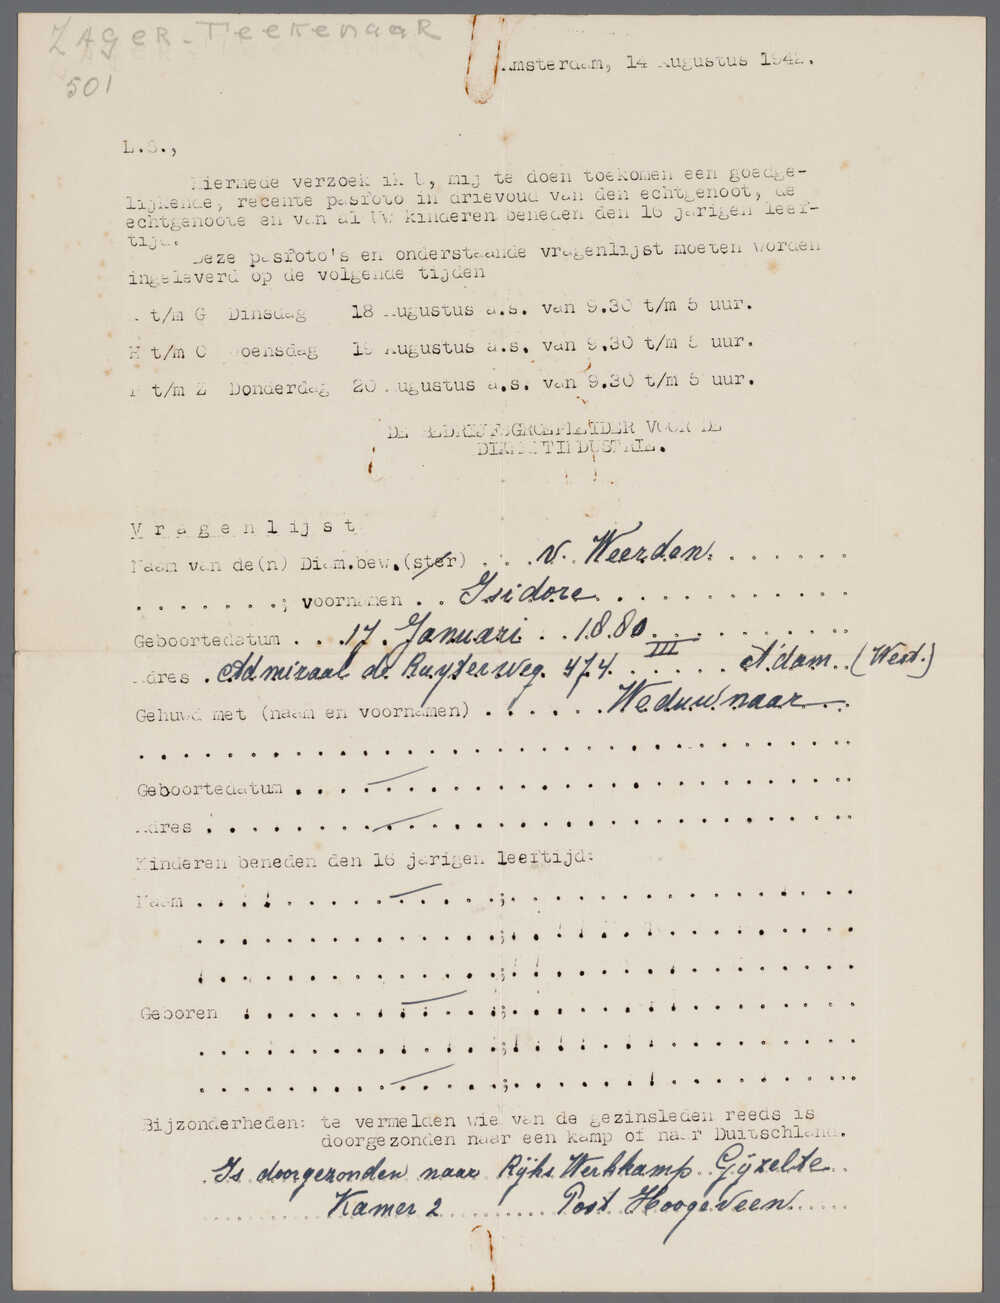 ZAGER - TEEKENAAR
501
Amsterdam, 14 Augustus 1942.
L.S.,
Hiermede verzoek ik U, mij te doen toekomen een goedge-
lijkende, recente pasfoto in drievoud van den echtgenoot, de
echtgenoote en van al Uw kinderen beneden den 16 jarigen leef-
tijd.
Deze pasfoto's en onderstaande vragenlijst moeten worden
ingeleverd op de volgende tijden
A t/m G Dinsdag 18 Augustus a.s. van 9.30 t/m 5 uur.
H t/m O Woensdag 19 Augustus a.s. van 9.30 t/m 5 uur.
P t/m Z Donderdag 20 Augustus a.s. van 9.30 t/m 5 uur.
DE BEDRIJFSGROEPLEIDER VOOR DE
DIAMANTINDUSTRIE.
Vragenlijst
Naam van de(n) Diam.bew.(ster) . . . v. Weerden. . . . . . .
. . . . . . .; voornamen . . Isidore. . . . . . . . . . . .
Geboortedatum . . 17 Januari . . 1880. . . . . . . . .
Adres . Admiraal de Ruyterweg. 474 III . . . . . A'dam. (West.)
Gehuwd met (naam en voornamen) . . . . . . Weduwnaar
Geboortedatum . . . . . . . . . . . . . . . . . . . . .
Adres . . . . . . . . . . . . . . . . . . . . . . . .
Kinderen beneden den 16 jarigen leeftijd:
Naam . . . . . . . . . . . . . ; . . . . . . . . . . . .
. . . . . . . . . . . . . ; . . . . . . . . . . . .
. . . . . . . . . . . . . ; . . . . . . . . . . . .
Geboren . . . . . . . . . . . ; . . . . . . . . . . . .
. . . . . . . . . . . . . ; . . . . . . . . . . . .
. . . . . . . . . . . . . ; . . . . . . . . . . . .
Bijzonderheden: te vermelden wie van de gezinsleden reeds is
doorgezonden naar een kamp of naar Duitschland.
Is doorgezonden naar Rijks Werkkamp Gijzelte
Kamer 2 Post Hoogeveen